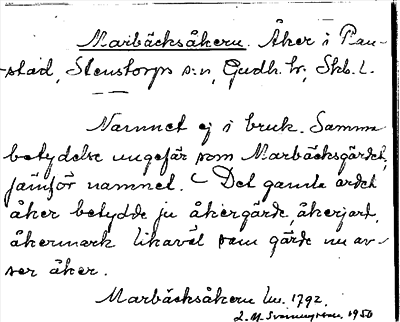 Marbäcksåkern. Åker i Pan-
stad, Stenstorps s:n, Gudh. hr, Skb. l.
Namnet ej i bruk. Samma
betydelse ungefär som Marbäcksgärdet,
jämför namnet. – Det gamla ordet
åker betydde ju åkergärde, åkerjord,
åkermark likaväl som gärde nu av-
ser åker.
Marbäcksåkern Lm. 1792.
1950